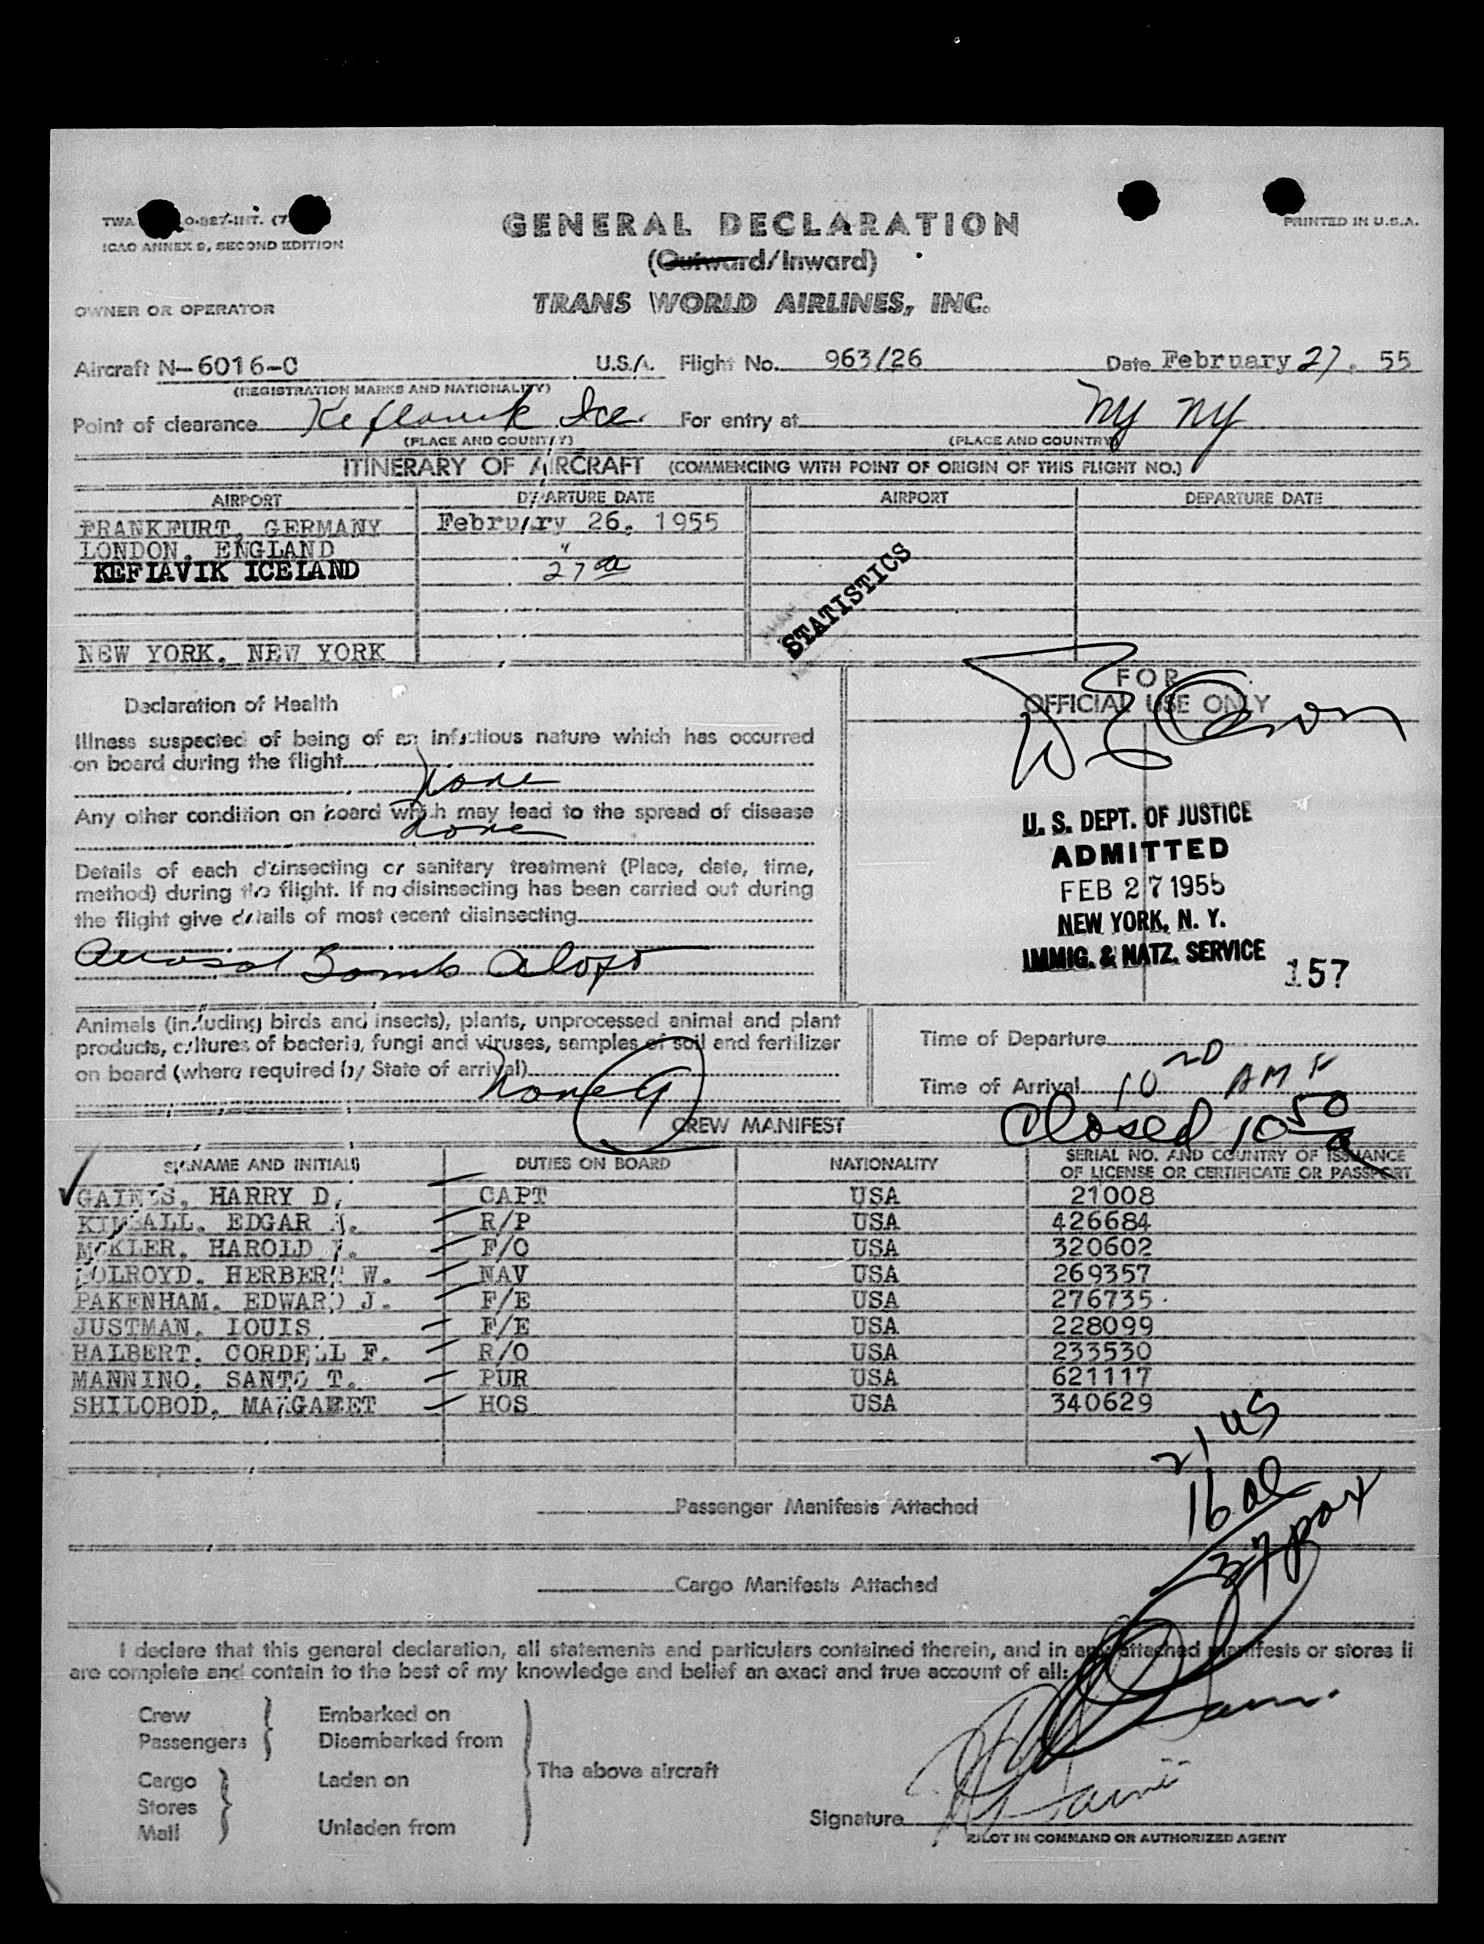 GENERAL DECLARATION
(Outward/Inward)
TWA
ICAO ANNEX 9, SECOND EDITION
PRINTED IN U.S.A.
OWNER OR OPERATOR
TRANS WORLD AIRLINES, INC.
Aircraft N-6016-C U.S.A. Flight No. 963/26 Date February 27, 55
(REGISTRATION MARKS AND NATIONALITY)
Point of clearance Keflavik Ice. For entry at NY NY
(PLACE AND COUNTRY) (PLACE AND COUNTRY)
ITINERARY OF AIRCRAFT (COMMENCING WITH POINT OF ORIGIN OF THIS FLIGHT NO.)
AIRPORT DEPARTURE DATE AIRPORT DEPARTURE DATE
FRANKFURT, GERMANY February 26, 1955
LONDON, ENGLAND "
KEFLAVIK ICELAND 27
STATISTICS
NEW YORK, NEW YORK
FOR
OFFICIAL USE ONLY
Declaration of Health
Illness suspected of being of an infectious nature which has occurred
on board during the flight
None
Any other condition on board which may lead to the spread of disease
None
Details of each disinsecting or sanitary treatment (Place, date, time,
method) during the flight. If no disinsecting has been carried out during
the flight give details of most recent disinsecting
Aerosol Bomb Aloft
U. S. DEPT. OF JUSTICE
ADMITTED
FEB 27 1955
NEW YORK, N. Y.
IMMIG. & NATZ. SERVICE
157
Animals (including birds and insects), plants, unprocessed animal and plant
products, cultures of bacteria, fungi and viruses, samples of soil and fertilizer
on board (where required by State of arrival)
None
Time of Departure
Time of Arrival 10 AM
Closed 10 50
CREW MANIFEST
SURNAME AND INITIALS DUTIES ON BOARD NATIONALITY SERIAL NO. AND COUNTRY OF ISSUANCE
OF LICENSE OR CERTIFICATE OR PASSPORT
GAINES, HARRY D. CAPT USA 21008
KIMBALL, EDGAR R/P USA 426684
MCKLER, HAROLD F/O USA 320602
HOLROYD, HERBERT W. NAV USA 269357
PAKENHAM, EDWARD J. F/E USA 276735
JUSTMAN, LOUIS F/E USA 228099
HALBERT, CORDELL F. R/O USA 233530
MANNINO, SANTO T. PUR USA 621117
SHILOBOD, MARGARET HOS USA 340629
21 US
16 al
37 pax
Passenger Manifests Attached
Cargo Manifests Attached
I declare that this general declaration, all statements and particulars contained therein, and in any attached manifests or stores li
are complete and contain to the best of my knowledge and belief an exact and true account of all:
Crew
Passengers
Embarked on
Disembarked from
Cargo
Stores
Mail
Laden on
Unladen from
The above aircraft
Signature
PILOT IN COMMAND OR AUTHORIZED AGENT